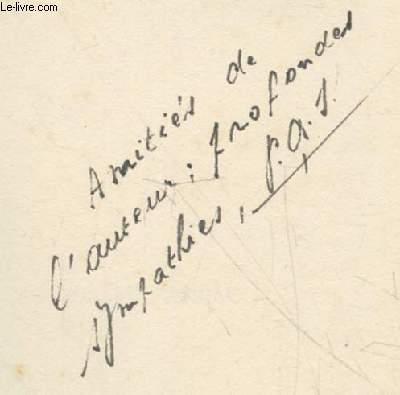 Le-livre.com
Amitiés de
l'auteur; profondes
sympathies, P.A.J.